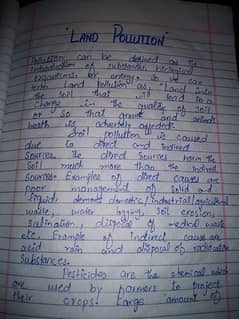 "LAND POLLUTION"
Pollution can be defined as To
introduction of substances, biological
organisms or energy, so we can
term Land pollution as "Land into
the soil that will lead to a
change in the quality of soil
or So that growth and
health is adversely affected.
Soil pollution is caused
due to direct and indirect
Sources. The direct sources harm the
soil much more than the indirect
sources. Examples of direct causes are
poor management of solid and
liquid, domestic/industrial/agricultural
waste, water logging, soil erosion,
salination, disposal of medical waste
etc. Example of indirect cause are
acid rain and disposal of radioactive
Substances.
Pesticides are the chemical which
are used by farmers to project
their crops. Large amount of